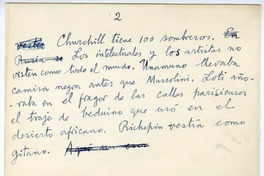 2
vestía Churchill tiene 100 sombreros. En
Rusia se Los intelectuales y los artistas no
visten como todo el mundo. Unamuno llevaba
camisa negra antes que Mussolini. Loti año-
raba en el fragor de las calles parisienses
el traje de beduino que usó en el
desierto africano. Richepin vestía como
gitano. Aquí un